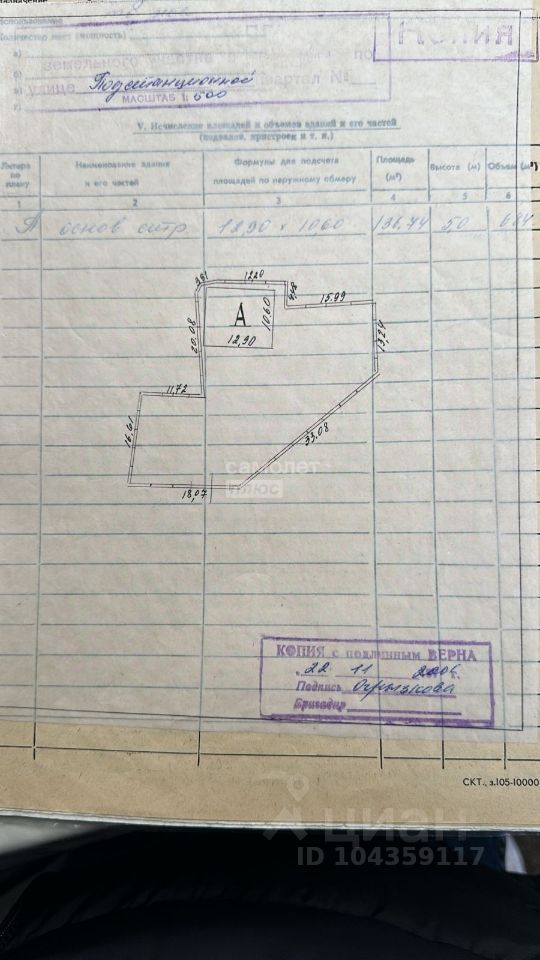 Копия
земельного участка
по
улице Подстанционной квартал №
МАСШТАБ 1: 500
V. Исчисление площадей и объемов зданий и его частей
(подвалов, пристроек и т. п.)
Литера по плану
Наименование здания и его частей
Формулы для подсчета площадей по наружному обмеру
Площадь (м²)
Высота (м)
Объем (м³)
1 2 3 4 5 6
А основ стр 12,90 × 10,60 136,74 50 684
3,91
12,20
15,99
20,08
А
10,60
12,90
13,24
11,72
16,61
33,08
18,07
самолет
плюс
КОПИЯ с подлинным ВЕРНА
22 11 2006 г.
Подпись
Бригадир
СКТ., з.105-10000
циан
ID 104359117